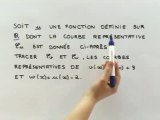 SOIT u UNE FONCTION DÉFINIE SUR
ℝ DONT LA COURBE REPRÉSENTATIVE
EST DONNÉE CI-APRÈS.
TRACER ET LES COURBES
REPRÉSENTATIVES DE
ET w(x) = u(x) - 2.